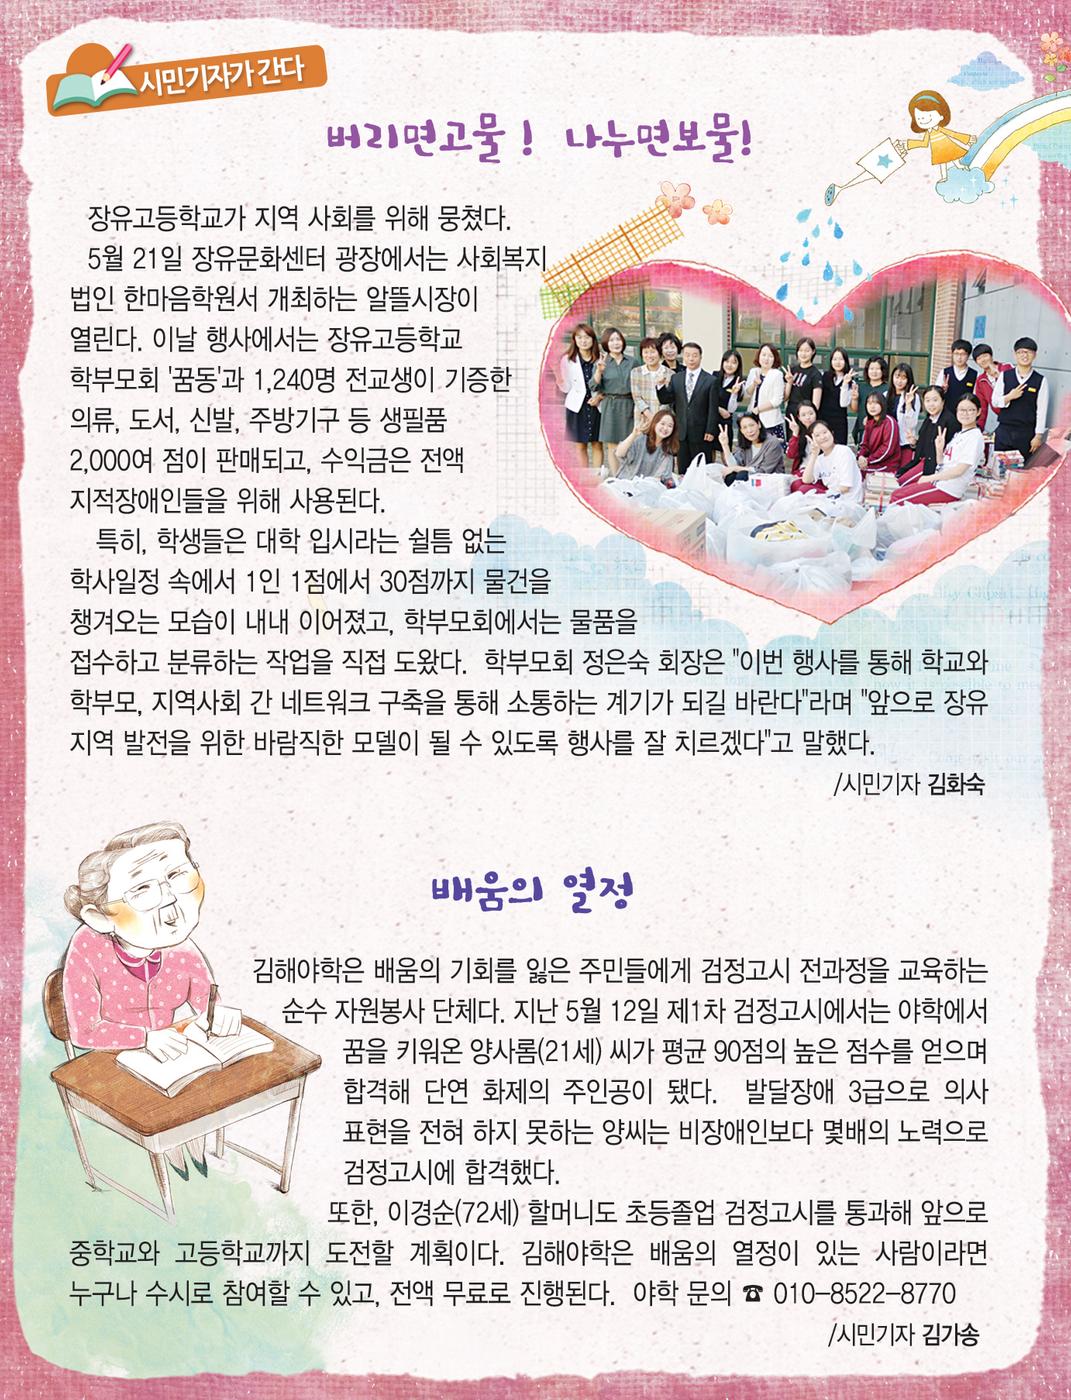 시민기자가 간다
버리면고물! 나누면보물!
장유고등학교가 지역 사회를 위해 뭉쳤다.
5월 21일 장유문화센터 광장에서는 사회복지
법인 한마음학원서 개최하는 알뜰시장이
열린다. 이날 행사에서는 장유고등학교
학부모회 '꿈동'과 1,240명 전교생이 기증한
의류, 도서, 신발, 주방기구 등 생필품
2,000여 점이 판매되고, 수익금은 전액
지적장애인들을 위해 사용된다.
특히, 학생들은 대학 입시라는 쉴틈 없는
학사일정 속에서 1인 1점에서 30점까지 물건을
챙겨오는 모습이 내내 이어졌고, 학부모회에서는 물품을
접수하고 분류하는 작업을 직접 도왔다. 학부모회 정은숙 회장은 "이번 행사를 통해 학교와
학부모, 지역사회 간 네트워크 구축을 통해 소통하는 계기가 되길 바란다"라며 "앞으로 장유
지역 발전을 위한 바람직한 모델이 될 수 있도록 행사를 잘 치르겠다"고 말했다.
/시민기자 김화숙
배움의 열정
김해야학은 배움의 기회를 잃은 주민들에게 검정고시 전과정을 교육하는
순수 자원봉사 단체다. 지난 5월 12일 제1차 검정고시에서는 야학에서
꿈을 키워온 양사롬(21세) 씨가 평균 90점의 높은 점수를 얻으며
합격해 단연 화제의 주인공이 됐다. 발달장애 3급으로 의사
표현을 전혀 하지 못하는 양씨는 비장애인보다 몇배의 노력으로
검정고시에 합격했다.
또한, 이경순(72세) 할머니도 초등졸업 검정고시를 통과해 앞으로
중학교와 고등학교까지 도전할 계획이다. 김해야학은 배움의 열정이 있는 사람이라면
누구나 수시로 참여할 수 있고, 전액 무료로 진행된다. 야학 문의 ☎ 010-8522-8770
/시민기자 김가송